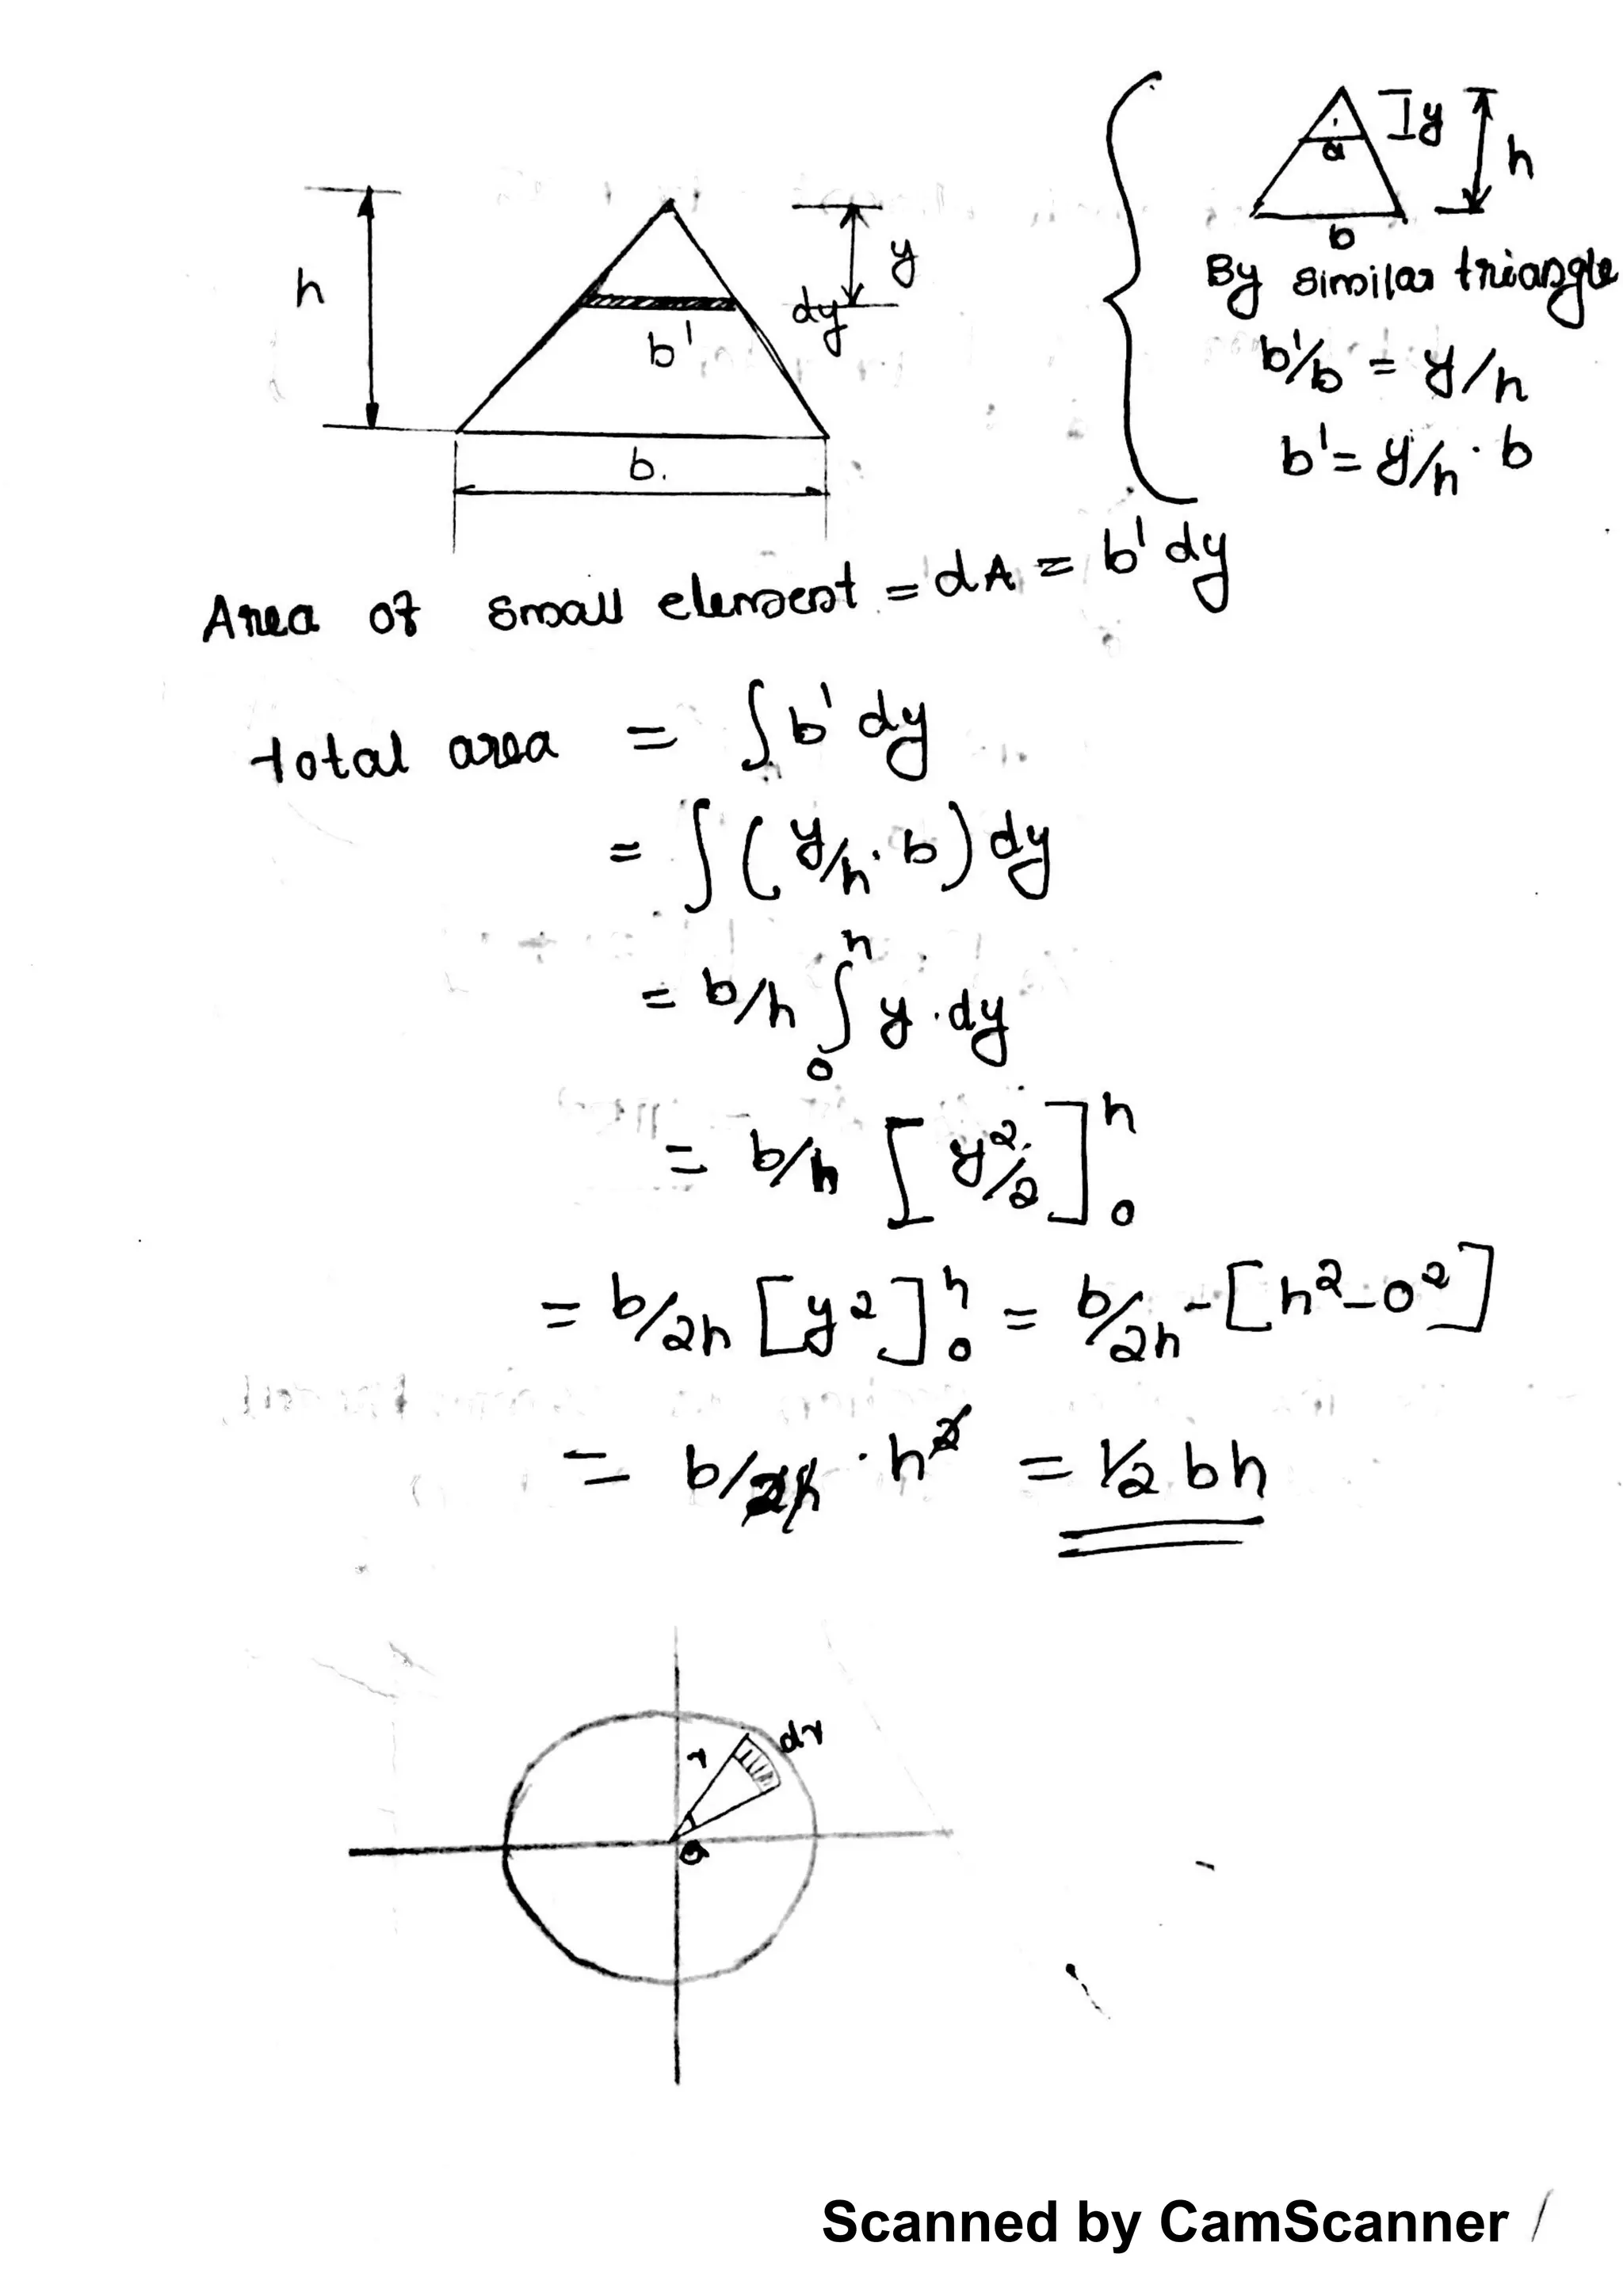 h
y
dy
b'
b.
y
h
a
b
By similar triangle
b'/b = y/h
b' = y/h · b
Area of small element = dA = b' dy
total area = ∫ b' dy
= ∫ ( y/h · b ) dy
= b/h ∫₀ʰ y · dy
= b/h [ y²/2 ]₀ʰ
= b/2h [ y² ]₀ʰ = b/2h - [ h² - 0² ]
= b/2h · h² = 1/2 bh
r
dr
Scanned by CamScanner